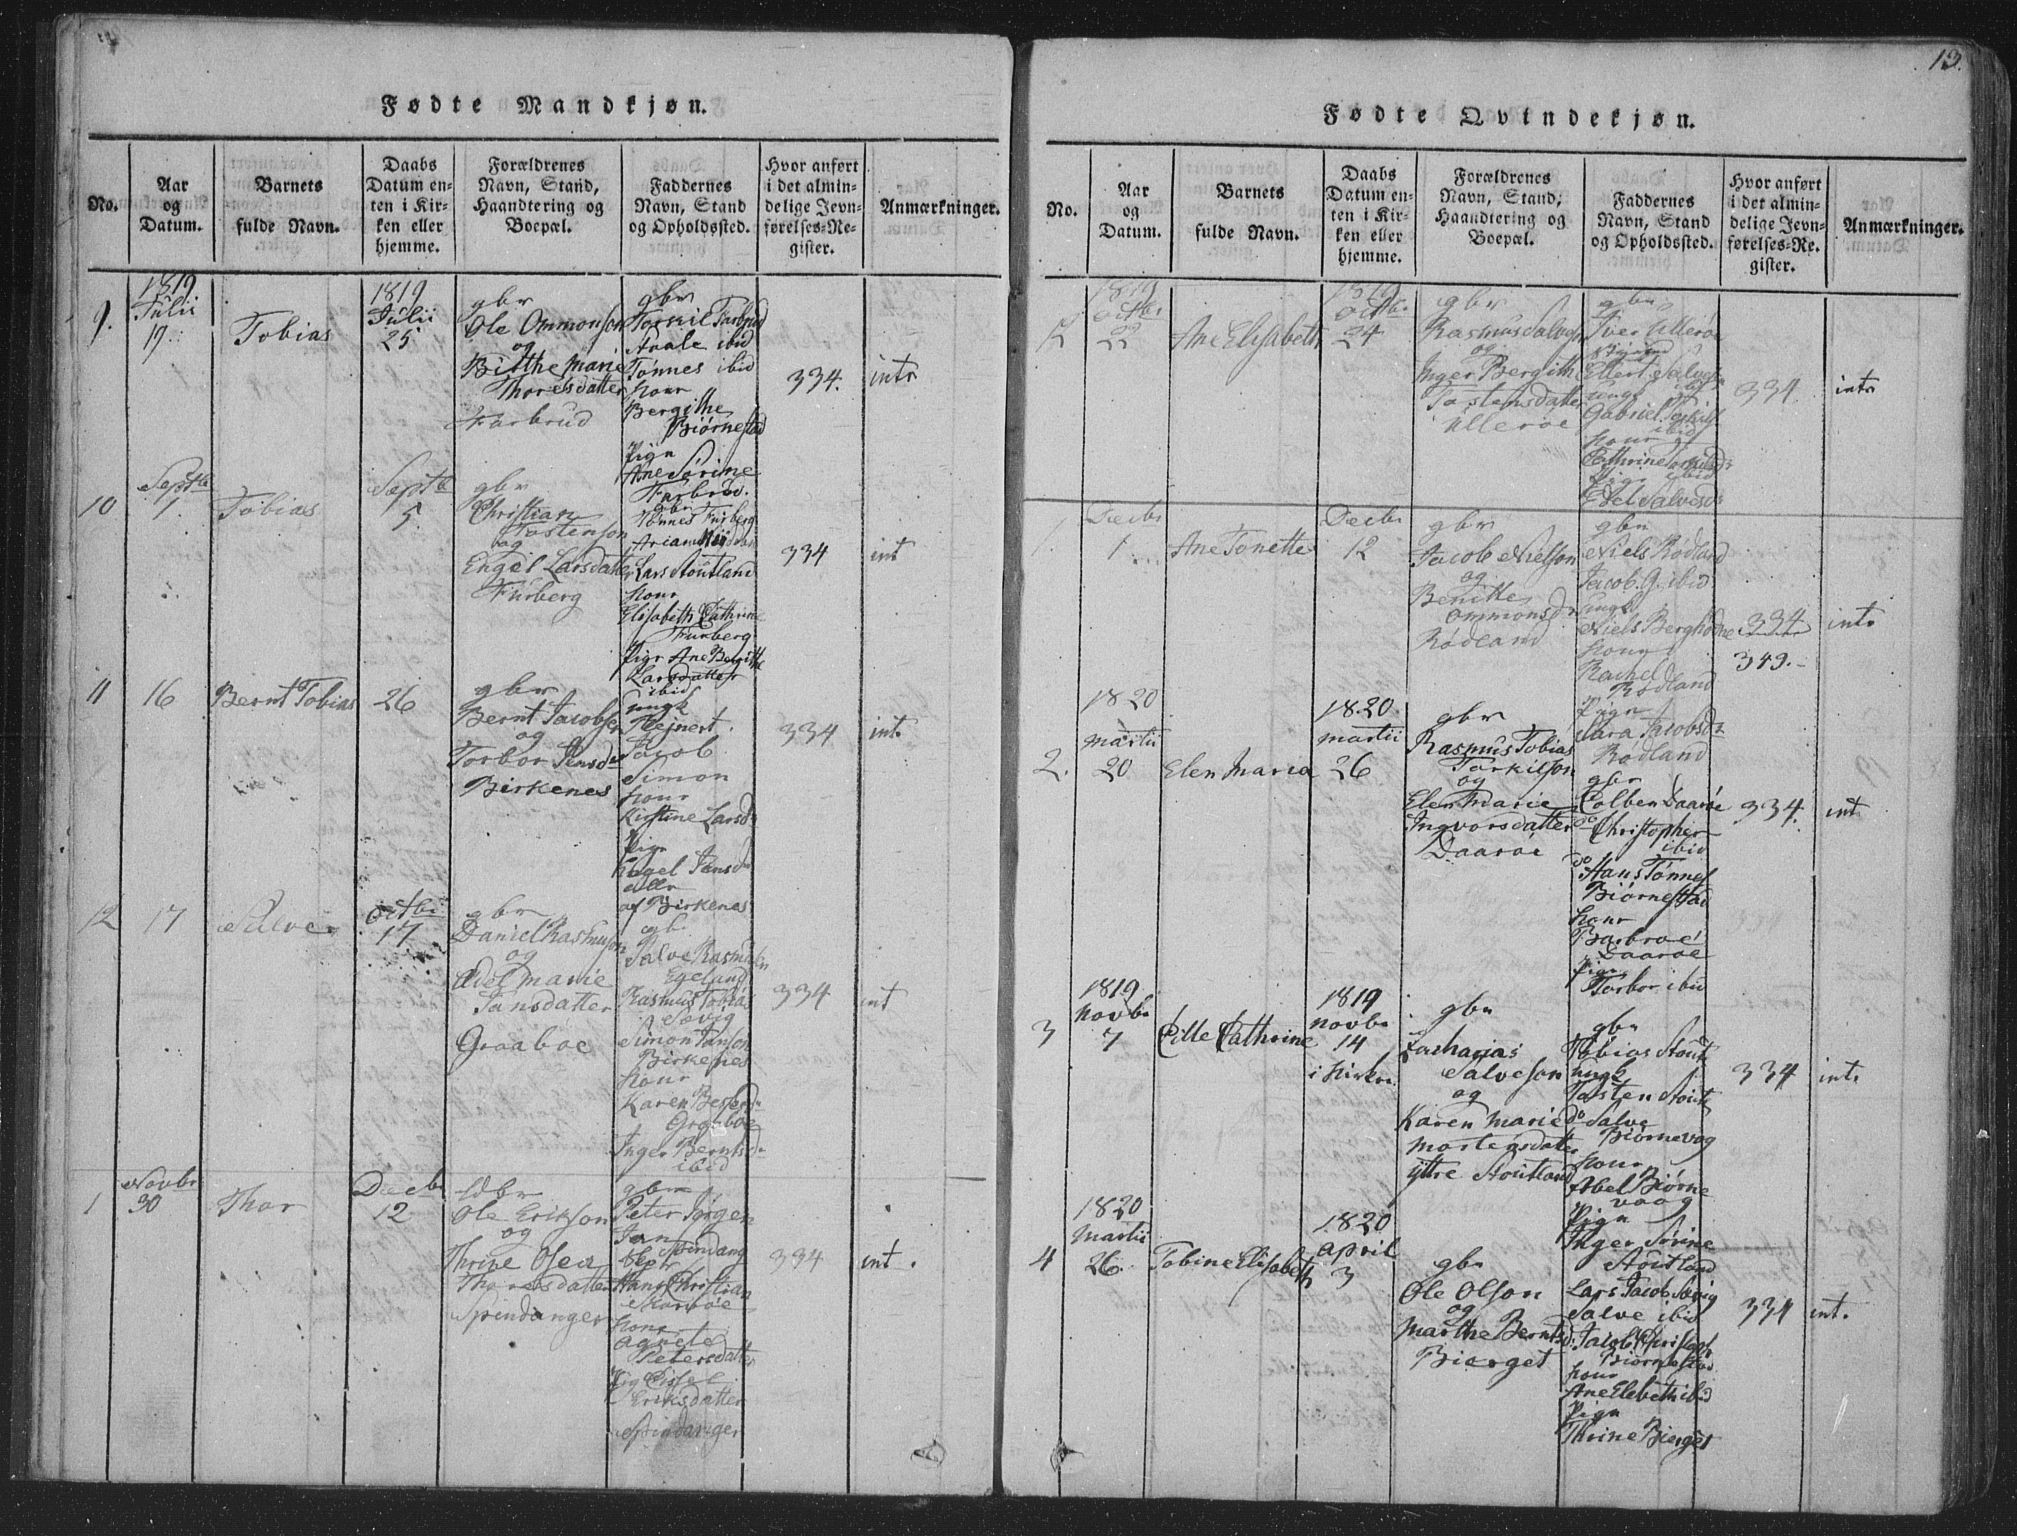 Fødte Mandkjøn.
No.
Aar
og
Datum.
Barnets
fulde Navn.
Daabs
Datum en-
ten i Kir-
ken eller
hjemme.
Forældrenes
Navn, Stand,
Haandtering og
Boepæl.
Faddernes
Navn, Stand
og Opholdssted.
Hvor anført
i det almin-
delige Jevn-
førelses-Re-
gister.
Anmærkninger.
9.
1819
Julii
19
Tobias
1819
Julii
25
gbr
Ole Ommonson
og
Birthe Marie
Thoresdatter
Farbrud
gbr
Torkil Farbrud
Aaale ibid
Tønnes ibid
konr
Bergithe
Biørnestad
Pigr
Ane Sørine
Farbrud.
334.
intr
10
Septb
1
Tobias
Septb
5
gbr
Christian
Tostenson
og
Engel Larsdatter
Furberg
gbr
Tønnes Furberg
Lars Stoutland
konr
Elisabeth Cathrine
Furberg
Pigr Ane Bergitte
Larsdatter
ibid
334
int
11
16
Bernt Tobias
26
gbr
Bernt Jacobsen
og
Torbor Jensdr
Birkenes
ungk
Reinert
Jacob
Simon
konr
Kirstine Larsdr
Pigr
Engel Jansdr
alle
af Birkenes
334
int.
12
17
Salve
Octbr
17
gbr
Daniel Rasmuson
og
Edel Marie
Jansdatter
Graaboe
gbr
Salve Rasmusen
Egeland
Rasmus Tobias
Søvig
Simon Janson
Birkenes
konr
Karen
Graaboe
Inger Berntsdr
ibid
334
int
1
Novbr
30
Thor
Decbr
12
Ole Erikson
og
Thrine Olea
Thoresdatter
Spendanger
gbr
Peter Jørgen
Jan
Spindang
Hans Christian
konr
Agnete
Petersdatter
Pig Sissel
Eriksdatter
Spindanger
334
int.
13.
Fødte Qvindekjøn.
No.
Aar
og
Datum.
Barnets
fulde Navn.
Daabs
Datum en-
ten i Kir-
ken eller
hjemme.
Forældrenes
Navn, Stand,
Haandtering og
Boepæl.
Faddernes
Navn, Stand
og Opholdssted.
Hvor anført
i det almin-
delige Jevn-
førelses-Re-
gister.
Anmærkninger.
12
1819
Octbr
22
Ane Elisabeth
1819
Octbr
24
gbr
Rasmus Salveson
og
Inger Bergith
Tostensdatter
Ullerøe
gbr
Iver Ullerøe
Ellert Salvesn
ungk ibid
Gabriel Torkils
ibid
konr
Cathrine Torkildsdr
Pigr ibid
Edel Salvesdr
334
intr
1
Decbr
1
Ane Tonette
Decbr
12
gbr
Jacob Nielson
og
Benitte
Ommonsdr
Rødland
gbr
Niels Rødland
Jacob G. ibid
ungk
Niels Berghølme
konr
Rachel
Rødland
Pigr
Sara Jacobsdr
Rødland
334
349.
intr
2.
1820
Martii
20
Elen Maria
1820.
Martii
26
gbr
Rasmus Tobias
Torkilson
og
Elen Marie
Ingvorsdatter
Daarøe
gbr
Colben Daarøe
do Christopher
ibid
do Hans Tønnes
Biørnestad
konr
Barbroe
Daarøe
Pigr
Torbor ibid
334.
int.
3
1819
Novbr
7
Cille Cathrine
1819
Novbr
14
i Kirken
gbr
Zacharias
Salveson
og
Karen Marie
Mortensdatter
Yttre Stoutland
gbr
Tobias Stout
ungk
Tosten Stoutl
do Salve
Biørnevog
konr
Abel Biørne
vaag
Pigr
Inger Sørine
Stoutland
334
int.
4
1820
Martii
26.
Tobine Elisabeth
1820
April
3
gbr
Ole Olson
og
Marthe Berntsd:
Bierget
Lars Jacob Søvig
Salve ibid
Jacob Christoph
Biørnestad
konr
Ane Elebeth ibid
Pigr
Thrine Bierget
334
int.